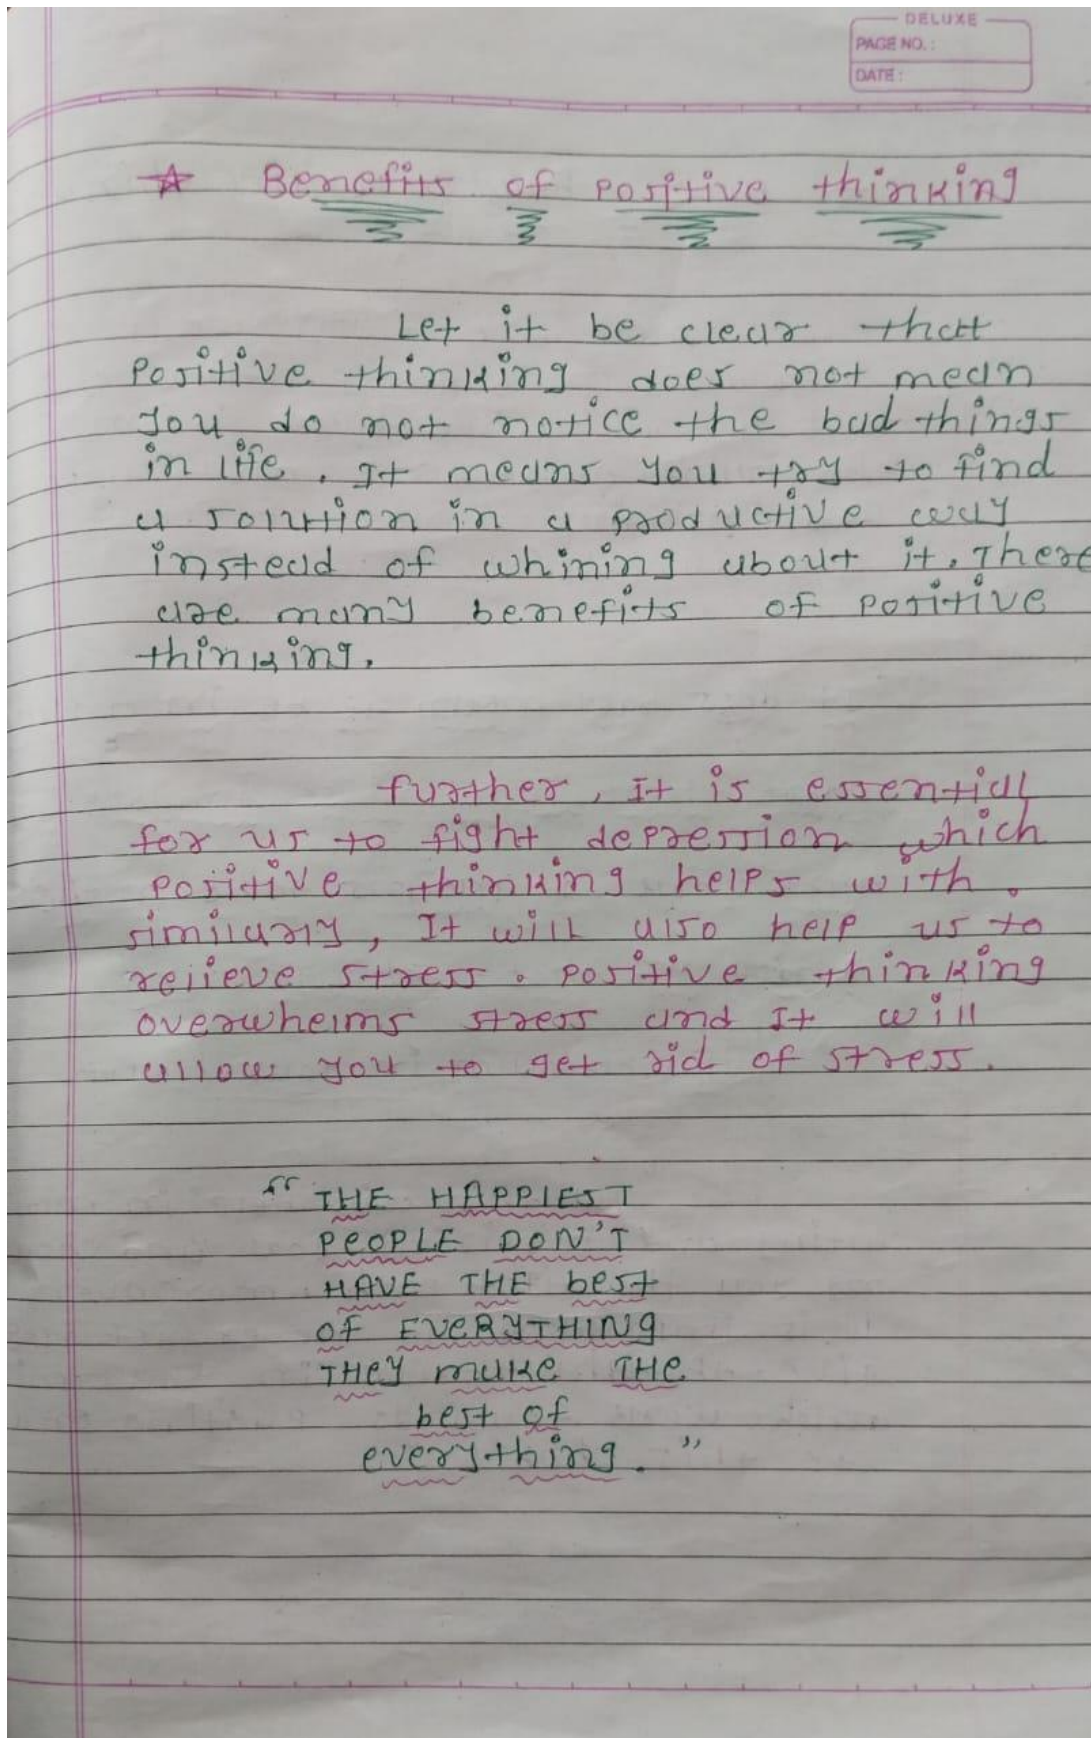 DELUXE
PAGE NO. :
DATE :
☆ Benefits of positive thinking
Let it be clear that
Positive thinking does not mean
you do not notice the bad things
in life. It means you try to find
a solution in a productive way
instead of whining about it. There
are many benefits of positive
thinking.
further, It is essential
for us to fight depression which
positive thinking helps with.
similarly, It will also help us to
relieve stress. positive thinking
overwhelms stress and It will
allow you to get rid of stress.
“ THE HAPPIEST
PEOPLE DON'T
HAVE THE best
OF EVERYTHING
THEY make THE
best of
everything. ”